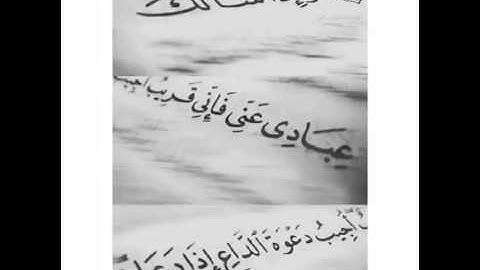 سَأَلَكَ
عِبَادِى عَنِّي فَإِنِّي قَرِيبٌ أُجِيبُ
أُجِيبُ دَعْوَةَ ٱلدَّاعِ إِذَا دَعَا